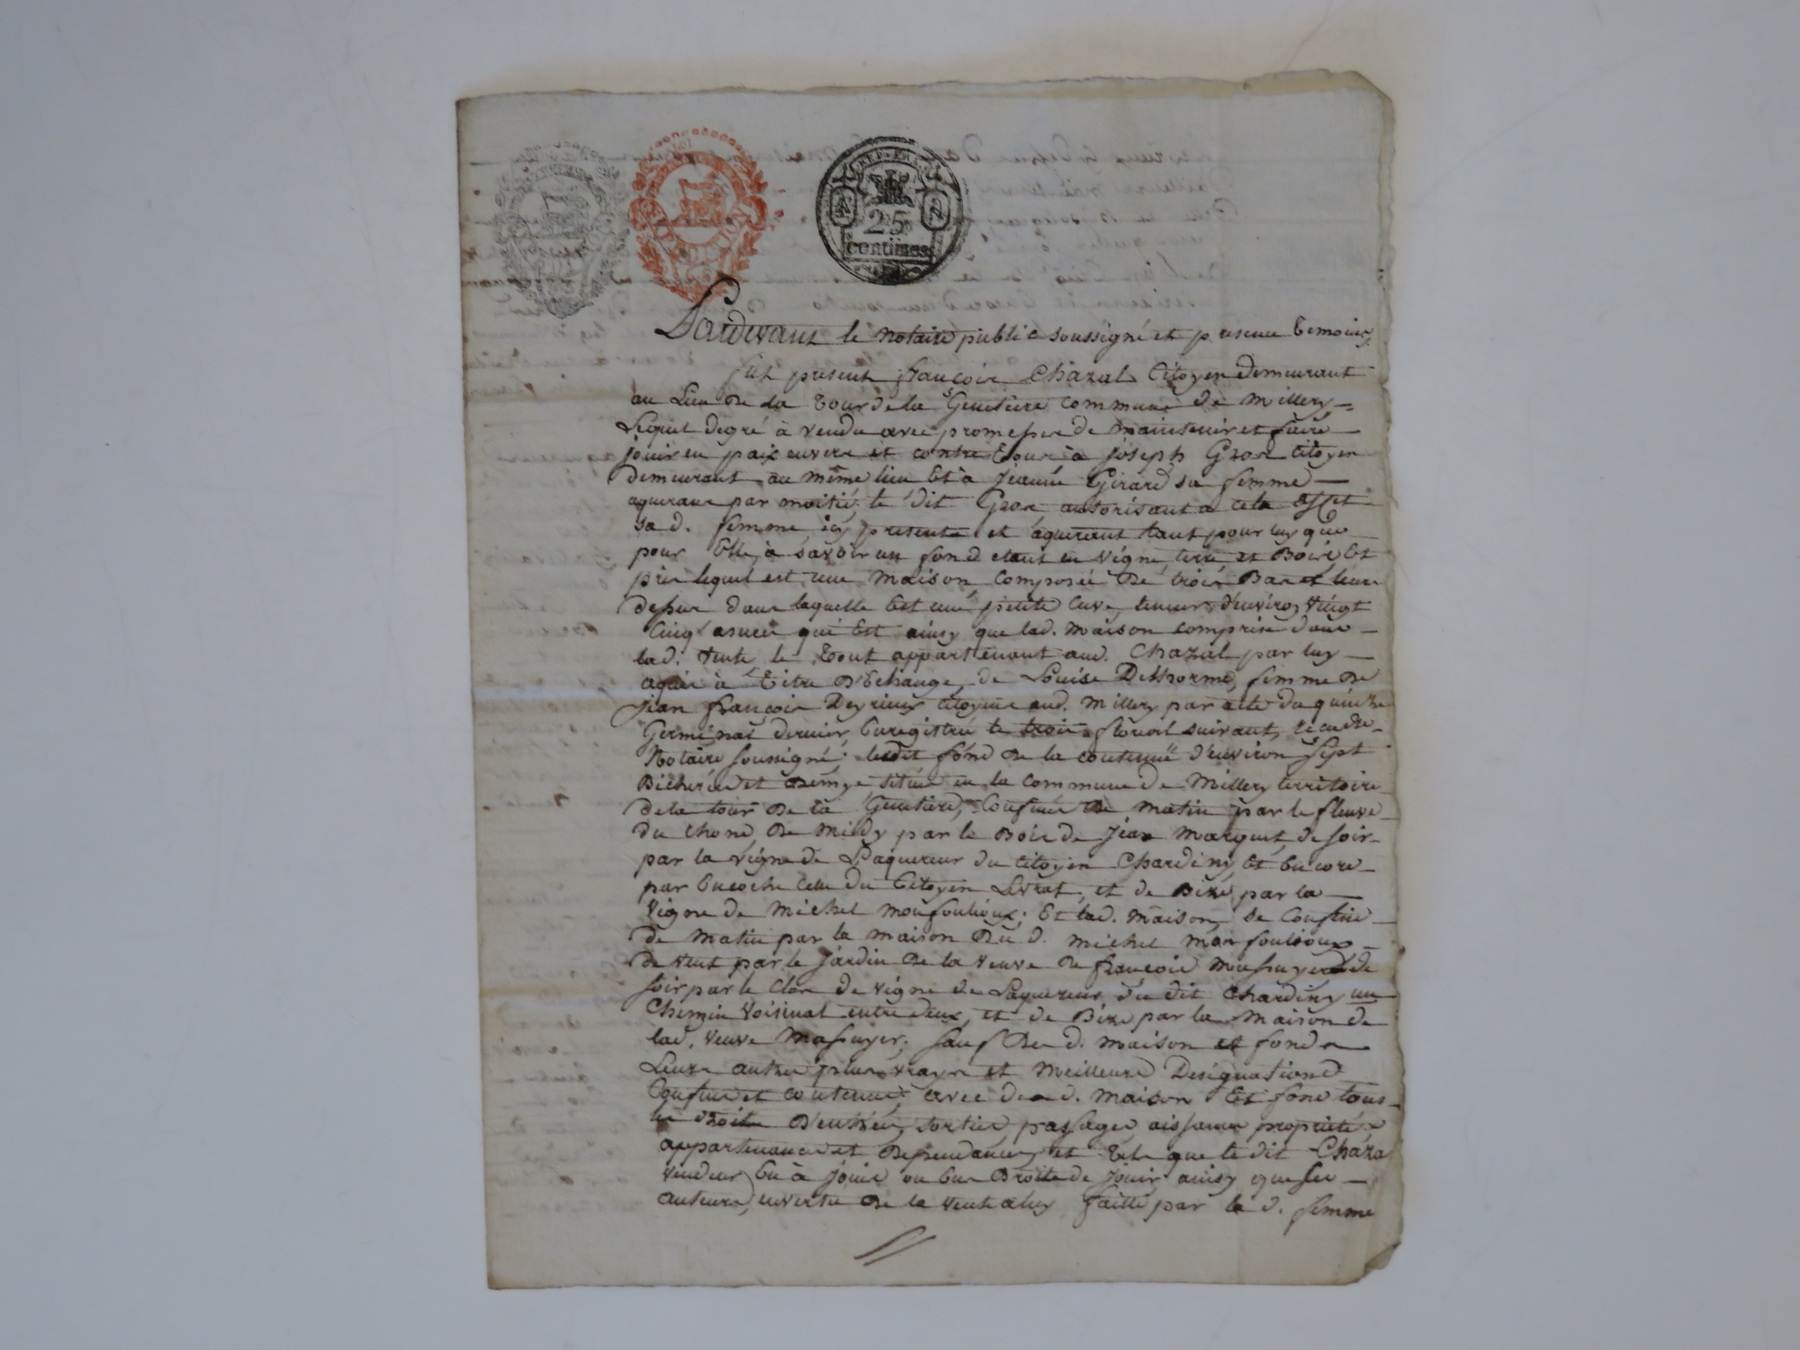 REP. FRA.
25
centimes
Pardevant le notaire public soussigné et presence temoins
fut present françois Chazal Citoyen demeurant
au Lieu De la tour de la Gentiere commune de Millery
Lequel degré à vendu avec promesse de maintenir et faire
jouir en paix envers et contre tous à joseph Gros citoyen
demeurant au même lieu Et à jeanne Girard sa femme
aquerans par moitié, le dit Gros autorisant a cela effet
sa d. femme, icy presente et aquerant tant pour luy que
pour Elle, à savoir un fond etant en vigne, terre et Bois, Et
près lequel est une maison, composée De trois Bas et leurs
dessus dans laquelle Est une petite cuve, teneur d'environ vingt
Cinq asnées qui Est ainsy que lad. maison comprise dans
lad. vente, le tout appartenant aud. Chazal par luy
aquis à titre D'Echange, de Louise Delhorme, femme De
jean françois Deyrieux citoyens aud. Millery par acte du quinze
Germinal dernier, Enregistré le trois floreal suivant, recu du
Notaire soussigné; ledit fond De la contenue d'environ sept
Bicherées et demye situé en la commune de Millery territoire
de la tour De la Gentiere, Confiné De matin par le fleuve
du rhone, De midy par le Bois de jean marquet, de soir
par la vigne de L'aquereur du citoyen Chardiny, Et Encore
par Encoche Celle du Citoyen Livrat, et de Bize par la
vigne de Michel monfoulioux; Et lad. maison, se Confine
de Matin par la maison Du d. michel monfoulioux
de vent par le jardin De la veuve De françois massuyer de
soir par le Clos de vigne de L'aquereur du dit Chardiny un
Chemin voisinal entre deux, et de Bize par la Maison de
lad. veuve Massuyer; sauf Des d. maison et fonds
Leurs autres plus vrayes et Meilleures Designations
Confins et contenue, avec des d. maison Et fond tous
les droits D'entrée, sorties, passages, aisances, propriétés
appartenances et Dependances, et tels que le dit Chazal
vendeur En à jouis ou Eus Droits de jouir ainsy que ses
auteurs, en vertu De la vente a luy faitte par la d. femme